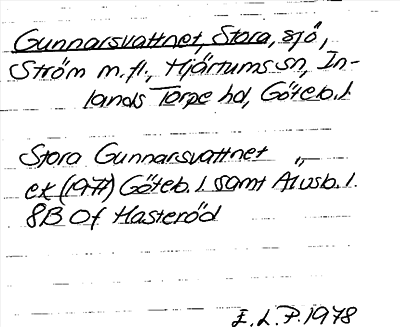 Gunnarsvattnet, Stora, sjö,
Ström m.fl., Hjärtums sn, In-
lands Torpe hd, Göteb. l.
Stora Gunnarsvattnet
ek (1977) Göteb. l. samt Älvsb. l.
8B 0f Hasteröd
E.L.P. 1978